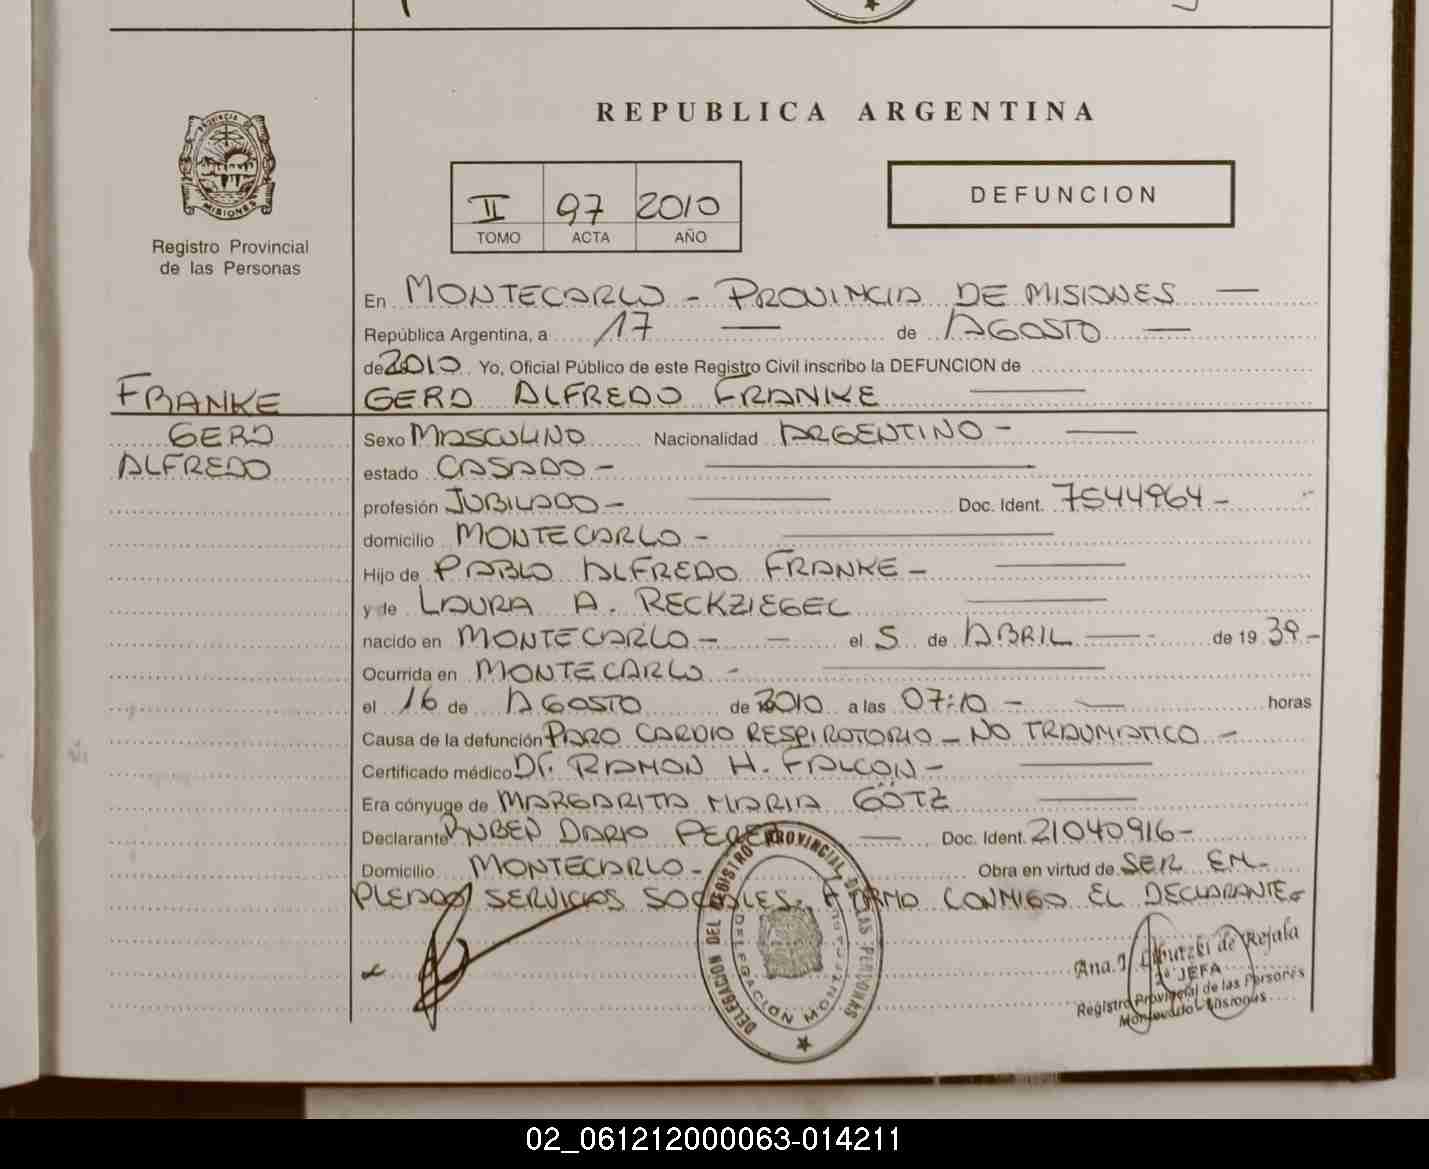 REPUBLICA ARGENTINA
PROVINCIA
MISIONES
Registro Provincial
de las Personas
II 97 2010
TOMO ACTA AÑO
DEFUNCION
En MONTECARLO - PROVINCIA DE MISIONES —
República Argentina, a 17 — de AGOSTO —
de 2010 Yo, Oficial Público de este Registro Civil inscribo la DEFUNCION de
GERD ALFREDO FRANKE —
FRANKE
GERD
ALFREDO
Sexo MASCULINO Nacionalidad ARGENTINO - —
estado CASADO - —
profesión JUBILADO - — Doc. Ident. 7544964 -
domicilio MONTECARLO - —
Hijo de PABLO ALFREDO FRANKE - —
y de LAURA A. RECKZIEGEL —
nacido en MONTECARLO - — el 5 de ABRIL — de 19 39.-
Ocurrida en MONTECARLO - —
el 16 de AGOSTO de 2010 a las 07:10 - — horas
Causa de la defunción PARO CARDIO RESPIROTORIO - NO TRAUMATICO -
Certificado médico Dr. RAMON H. FALCON - —
Era cónyuge de MARGARITA MARIA GÖTZ —
Declarante RUBEN DARIO PEREZ — Doc. Ident. 21040916 -
Domicilio MONTECARLO - Obra en virtud de SER EM-
PLEADO SERVICIOS SOCIALES. FIRMO CONMIGO EL DECLARANTE.
DELEGACION DEL REGISTRO PROVINCIAL DE LAS PERSONAS
DELEGACION
Ana. de Rejala
JEFA
Registro Provincial de las Personas
02_061212000063-014211